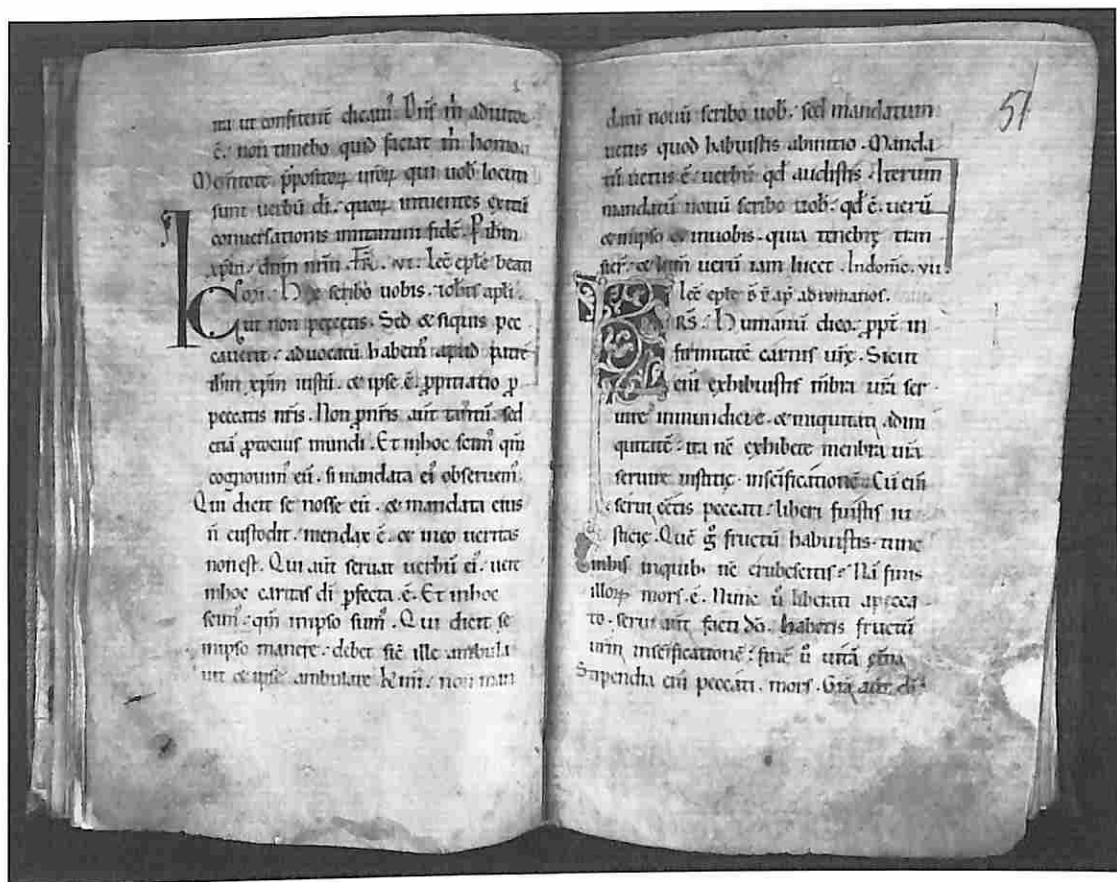 ita ut confitent dicam᷒. Dn̄s m̄ adiutor
ē. non timebo quid faciat m̄ homo.
Mem̄tote p̄positoꝝ ur̄oꝝ qui uob̄ locuti
sunt uerbū dī. quoꝝ intuentes exitū
conuersationis imitamini fidē. P ih̄m
xp̄m dn̄m nr̄m. FR̄. VI. Lec̄ epl̄e beati
Ioh̄i. Hec scribo uobis. iohis apl̄i.
ut non peccetis. Sed & siquis pec
cauerit. aduocatū habem᷒ apud patrē
ih̄m xp̄m iustū. & ipse ē. p̄pitiatio ꝓ
peccatis nr̄is. Non ꝓnr̄is aut̄ tantū. sed
etiā ꝓtocius mundi. Et inhoc scim᷒ qm̄
cognouim᷒ eū. si mandata ei᷒ obseruem᷒.
Qui dicit se nosse eū. & mandata eius
n̄ custodit. mendax ē. & ineo ueritas
nonest. Qui aut̄ seruat uerbū ei᷒. uere
inhoc caritas dī pfecta ē. Et inhoc
scim᷒. qm̄ inipso sum᷒. Qui dicit se
inipso manere. debet sic̄ ille ambula
uit & ipse ambulare. k̄mi. non man
51
datū nouū scribo uob̄. sed mandatum
uetus quod habuistis abinitio. Manda
tū uetus ē. uerbū qd̄ audistis. Iterum
mandatū nouū scribo uob̄. qd̄ ē. uerū
& inipso & inuobis. quia tenebrę tran
sier̄. & lum̄ uerū iam lucet. Indomic̄. VII.
Lec̄ epl̄e b̄ P̄ ap̄ adromanos.
FRS̄. Humanū dico. ꝓpt̄ in
firmitatē carnis ur̄ę. Sicut
eni exhibuistis m̄bra ur̄a ser
uire inmundicie. & iniquitati adini
quitatē. ita nc̄ exhibete menbra ur̄a
seruire iusticię. insc̄ificationē. Cū eni
serui ēetis peccati. liberi fuistis iu
sticię. Quē g̊ fructū habuistis. tunc
inhis inquib᷒ nc̄ erubescitis. Nā finis
illoꝝ mors ē. Nunc ů liberati apecca
to. serui aut̄ facti dō. habetis fructū
ur̄m insc̄ificationē. finē ů uitā ęt̄nā.
Stipendia eni peccati. mors. Gr̄a aut̄ dī